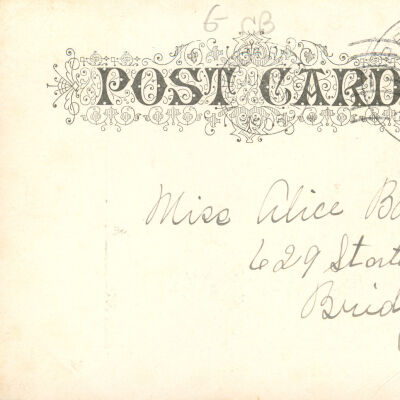 G CB
POST CARD
Miss Alice Ba
629 State
Brid